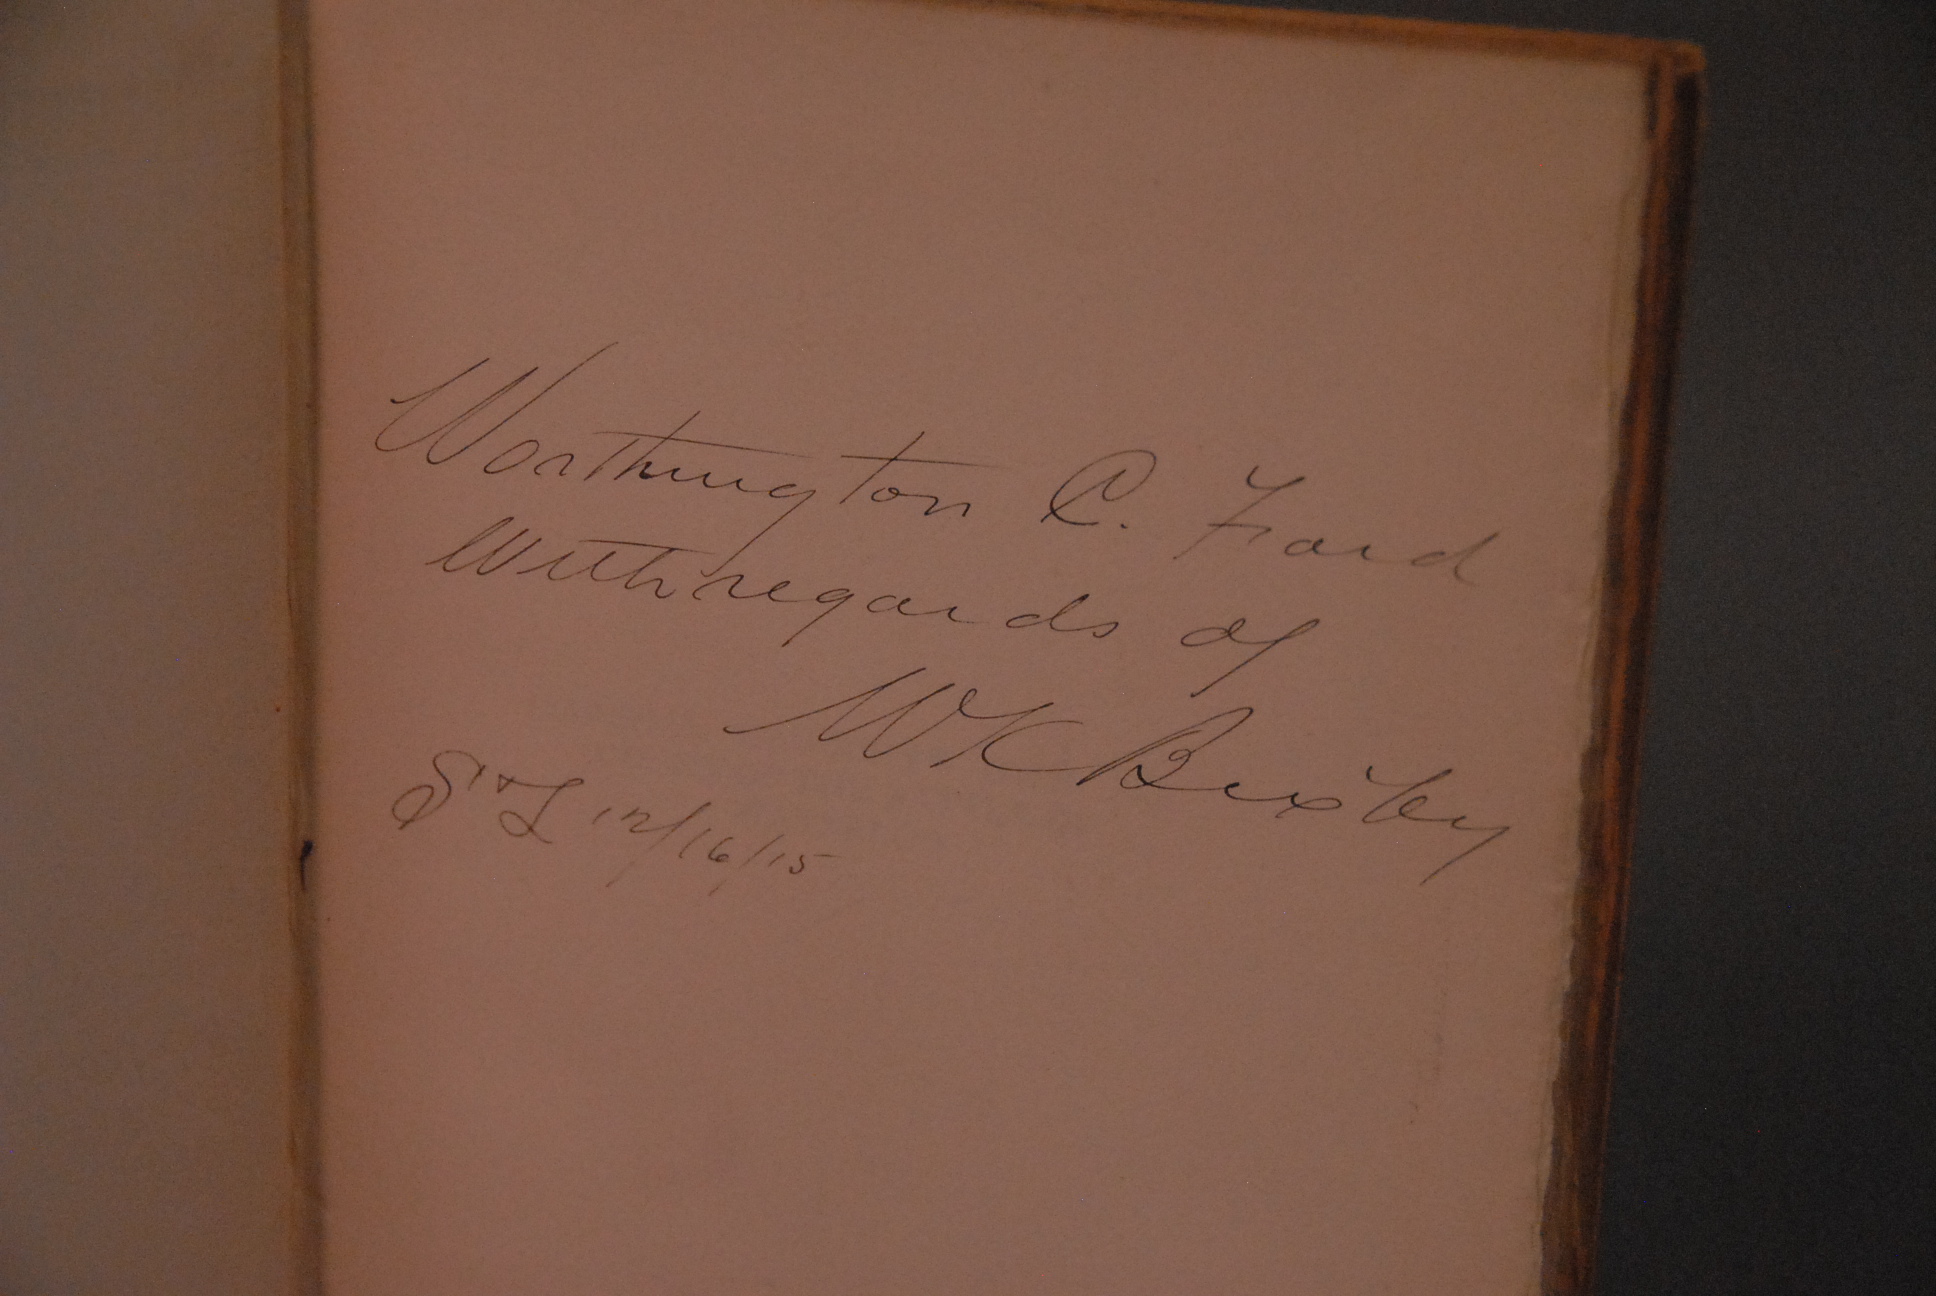 Worthington C. Ford
With regards of
WK Bixby
St L 12/16/15